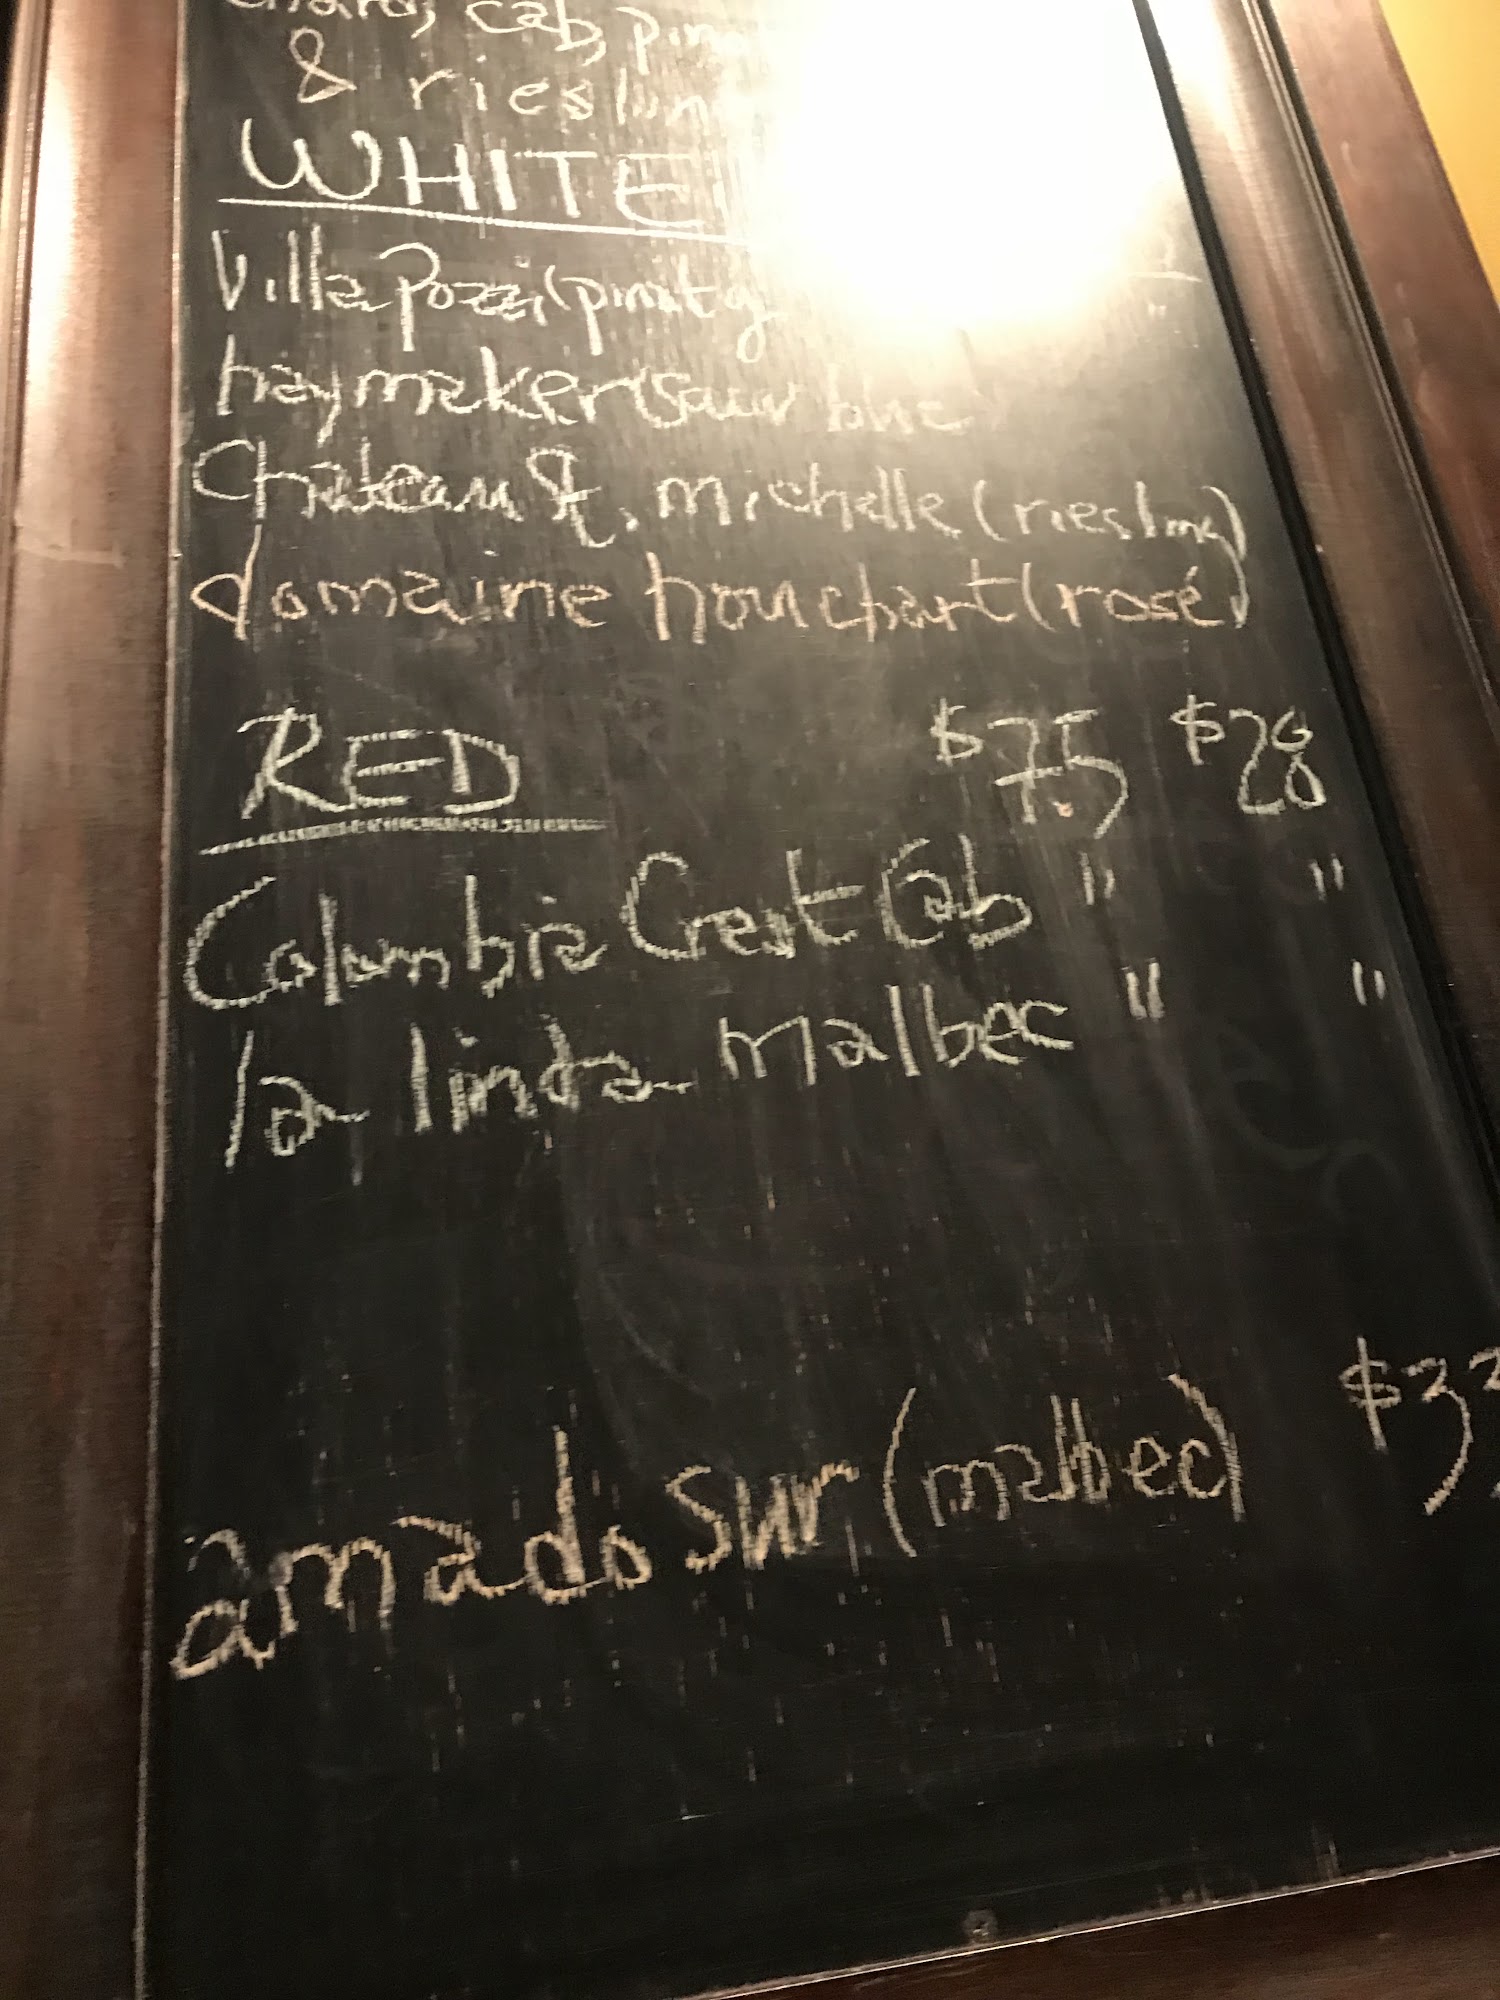 cab,
& riesling
WHITE
Villa Pozzi (pinot g
haymaker (sauv blnc)
Chateau St. michelle (riesling)
domaine houchart (rosé)
RED $7.5 $28
Columbia Crest Cab " "
la linda malbec " "
amado sur (malbec) $33